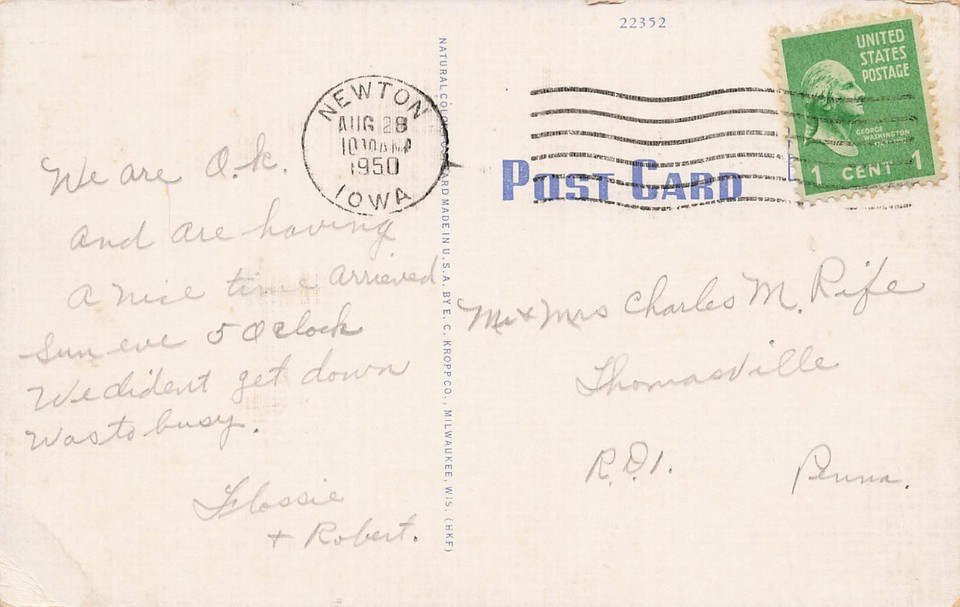 22352
UNITED
STATES
POSTAGE
GEORGE
WASHINGTON
1 CENT 1
NEWTON
AUG 28
1950
IOWA
POST CARD
We are O.k.
and are having
a nise time arrieved
Sun eve 5 O clock
We dident get down
Was to busy.
Flossie
+ Robert.
NATURAL COLOR CARD MADE IN U.S.A. BY E. C. KROPP CO., MILWAUKEE, WIS. (HKF)
Mr + Mrs Charles M. Rife
Thomasville
R.D.1. Penna.